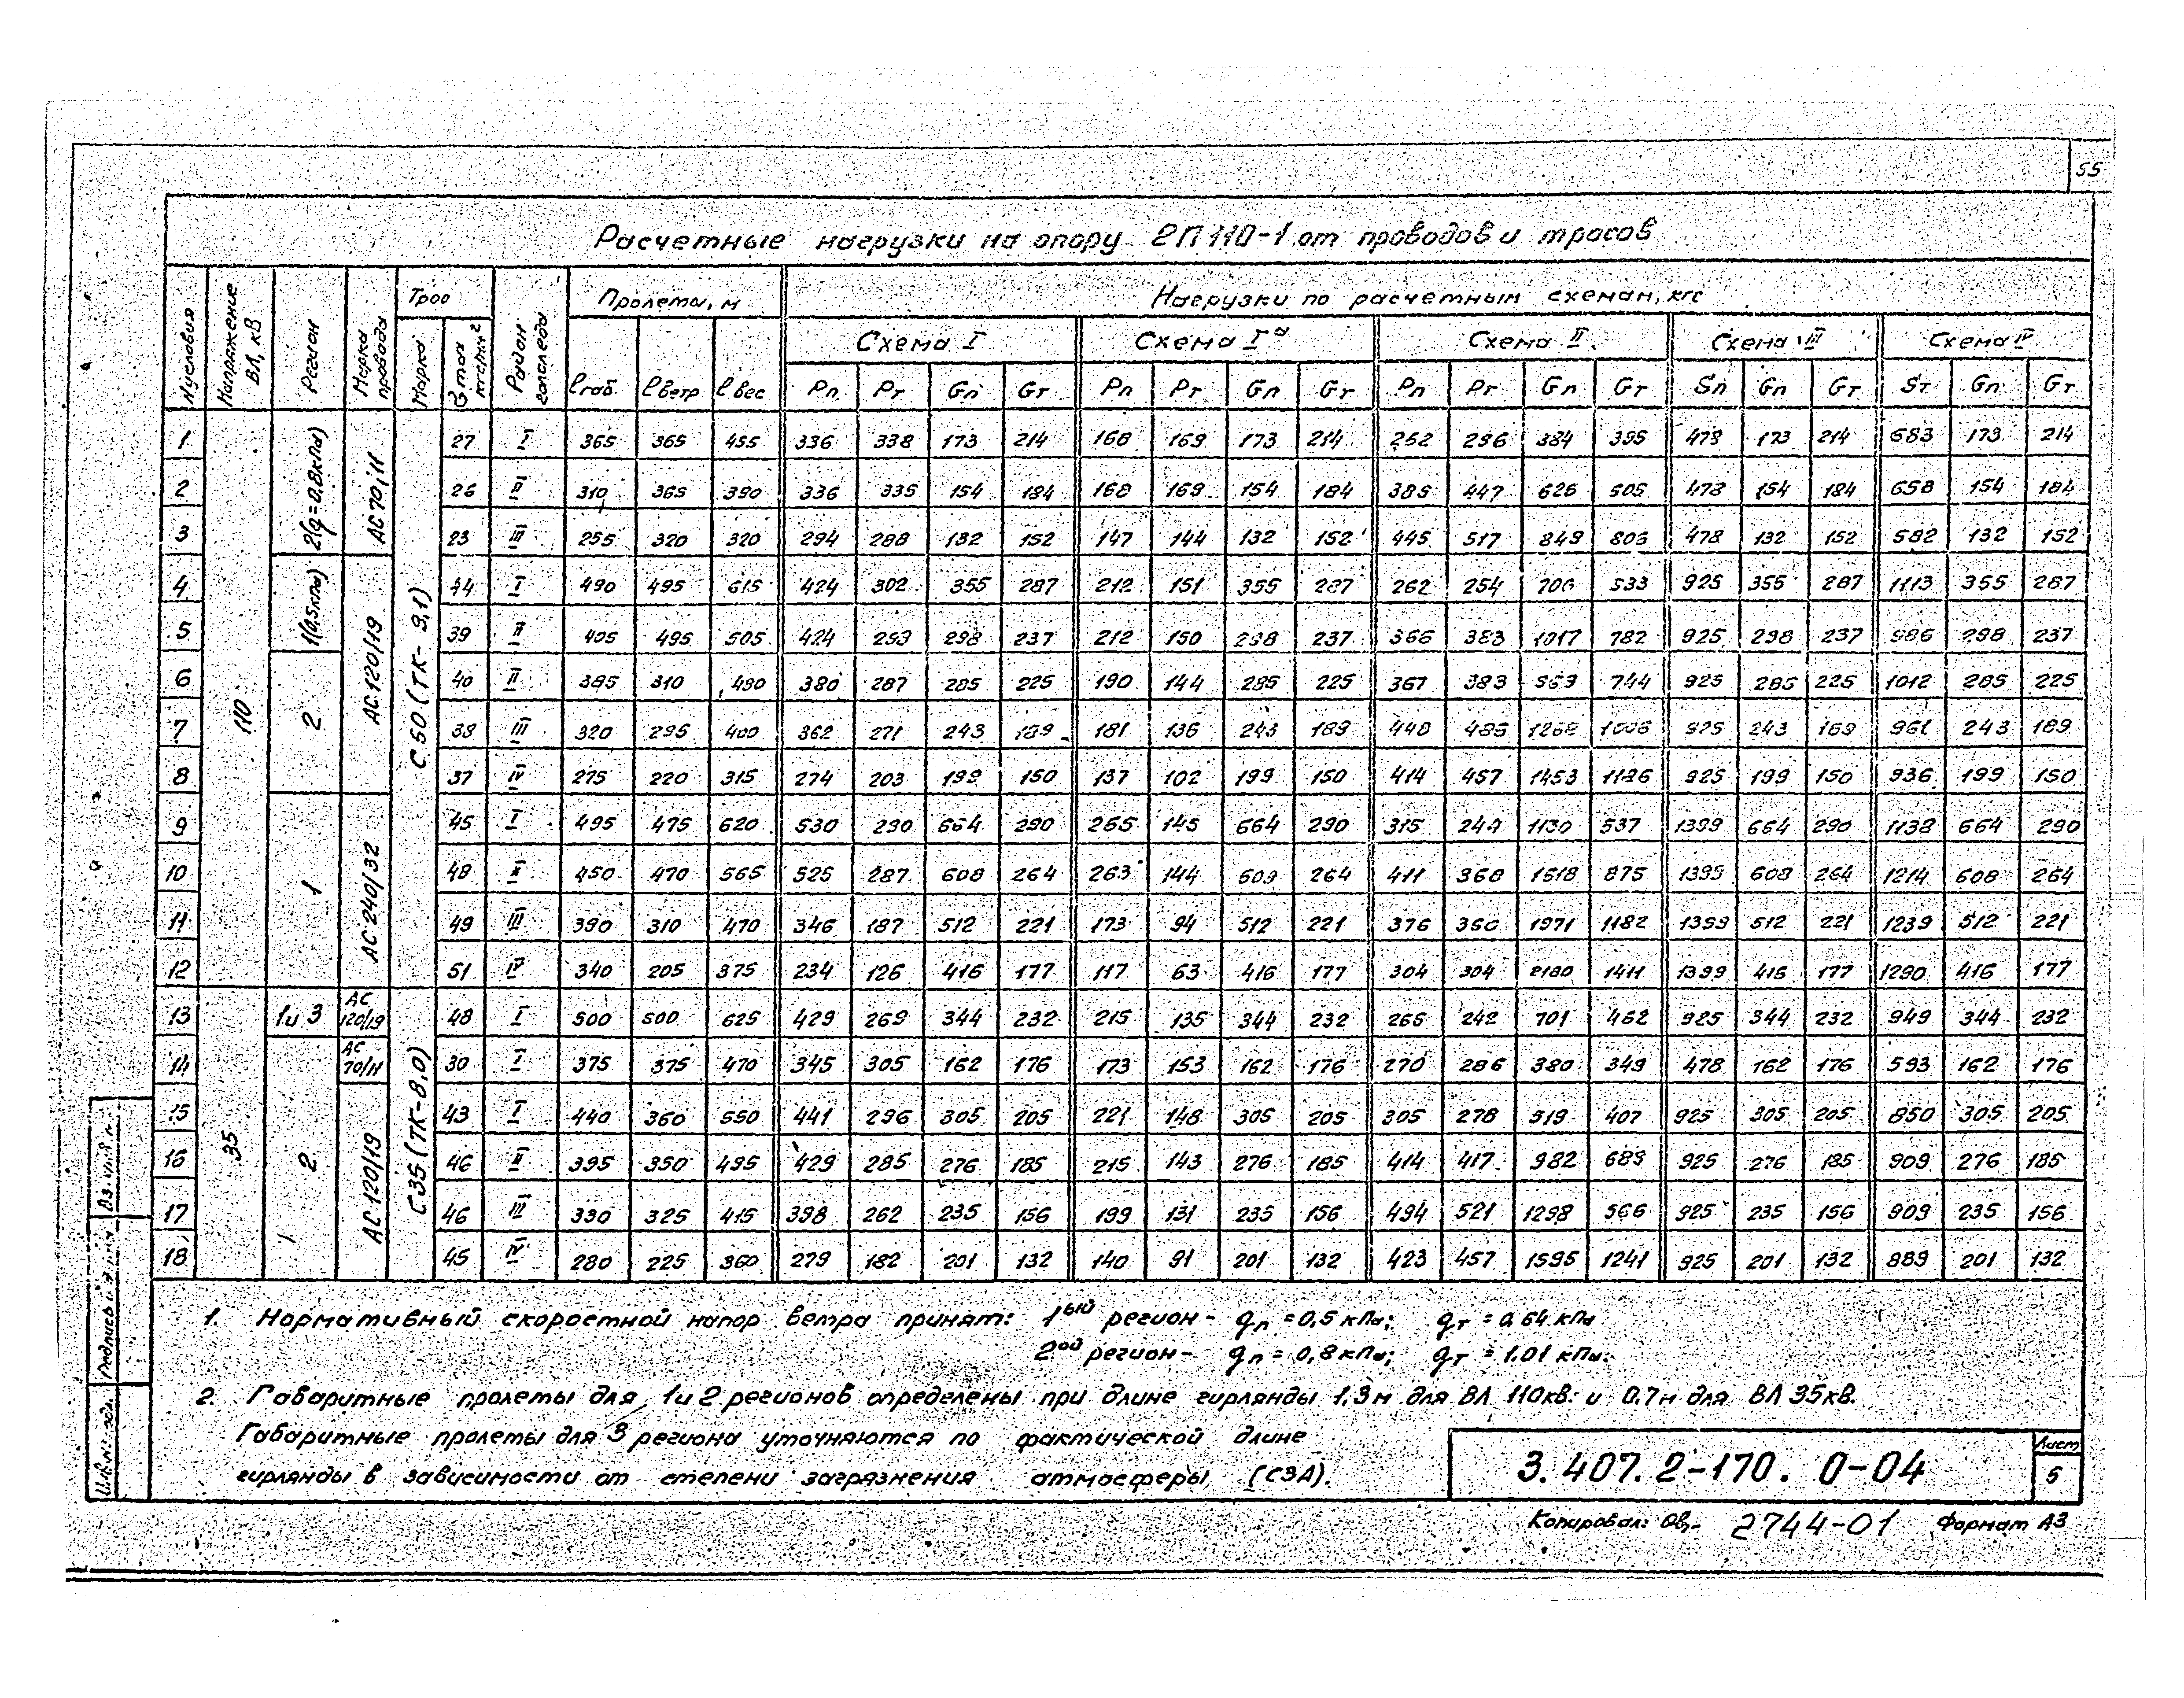 55
Расчетные нагрузки на опору 2П110-1 от проводов и тросов
№ условия | Напряжение ВЛ, кВ | Регион | Марка провода | Трос | Район гололеда | Пролеты, м | Нагрузки по расчетным схемам, кгс
Марка | кгс/мм² | lгаб. | lветр | lвес | Схема I | Схема Iа | Схема II | Схема III | Схема IV
Рп | Рт | Gп | Gт | Рп | Рт | Gп | Gт | Рп | Рт | Gп | Gт | Sп | Gп | Gт | Sт | Gп | Gт
110 | 2(q=0,8кПа) | АС70/11 | С50 (ТК-9,1)
1 | 27 | I | 365 | 365 | 455 | 336 | 338 | 173 | 214 | 168 | 169 | 173 | 214 | 262 | 296 | 384 | 395 | 478 | 173 | 214 | 683 | 173 | 214
2 | 26 | II | 310 | 365 | 390 | 336 | 335 | 154 | 184 | 168 | 169 | 154 | 184 | 389 | 447 | 626 | 605 | 478 | 154 | 184 | 658 | 154 | 184
3 | 23 | III | 255 | 320 | 320 | 294 | 288 | 132 | 152 | 147 | 144 | 132 | 152 | 445 | 517 | 849 | 806 | 478 | 132 | 152 | 582 | 132 | 152
1(0,5кПа) | АС120/19
4 | 44 | I | 490 | 495 | 615 | 424 | 302 | 355 | 287 | 212 | 151 | 355 | 287 | 262 | 254 | 706 | 533 | 925 | 355 | 287 | 1113 | 355 | 287
5 | 39 | II | 405 | 495 | 505 | 424 | 299 | 298 | 237 | 212 | 150 | 298 | 237 | 366 | 383 | 1017 | 782 | 925 | 298 | 237 | 986 | 298 | 237
2
6 | 40 | II | 385 | 310 | 480 | 380 | 287 | 285 | 225 | 190 | 144 | 285 | 225 | 367 | 383 | 969 | 744 | 925 | 285 | 225 | 1012 | 285 | 225
7 | 38 | III | 320 | 295 | 400 | 362 | 271 | 243 | 189 | 181 | 136 | 243 | 189 | 448 | 485 | 1268 | 1006 | 925 | 243 | 189 | 961 | 243 | 189
8 | 37 | IV | 275 | 220 | 315 | 274 | 203 | 199 | 150 | 137 | 102 | 199 | 150 | 414 | 457 | 1453 | 1196 | 925 | 199 | 150 | 936 | 199 | 150
1 | АС240/32
9 | 45 | I | 495 | 475 | 620 | 530 | 290 | 664 | 290 | 265 | 145 | 664 | 290 | 315 | 244 | 1130 | 537 | 1399 | 664 | 290 | 1138 | 664 | 290
10 | 48 | II | 450 | 470 | 565 | 525 | 287 | 608 | 264 | 263 | 144 | 608 | 264 | 411 | 368 | 1618 | 875 | 1399 | 608 | 264 | 1214 | 608 | 264
11 | 49 | III | 390 | 310 | 470 | 346 | 187 | 512 | 221 | 173 | 94 | 512 | 221 | 376 | 360 | 1971 | 1182 | 1399 | 512 | 221 | 1239 | 512 | 221
12 | 51 | IV | 340 | 205 | 375 | 234 | 126 | 416 | 177 | 117 | 63 | 416 | 177 | 304 | 304 | 2180 | 1411 | 1399 | 416 | 177 | 1290 | 416 | 177
35 | 1 и 3 | АС 120/19 | С35 (ТК-8,0)
13 | 48 | I | 500 | 500 | 625 | 429 | 269 | 344 | 232 | 215 | 135 | 344 | 232 | 265 | 242 | 701 | 462 | 925 | 344 | 232 | 949 | 344 | 232
2 | АС 70/11
14 | 30 | I | 375 | 375 | 470 | 345 | 305 | 162 | 176 | 173 | 153 | 162 | 176 | 270 | 286 | 380 | 349 | 478 | 162 | 176 | 593 | 162 | 176
АС120/19
15 | 43 | I | 440 | 360 | 550 | 441 | 296 | 305 | 205 | 221 | 148 | 305 | 205 | 305 | 278 | 519 | 407 | 925 | 305 | 205 | 850 | 305 | 205
16 | 46 | II | 395 | 350 | 495 | 429 | 285 | 276 | 185 | 215 | 143 | 276 | 185 | 414 | 417 | 982 | 689 | 925 | 276 | 185 | 909 | 276 | 185
17 | 46 | III | 330 | 325 | 415 | 398 | 262 | 235 | 156 | 199 | 131 | 235 | 156 | 494 | 521 | 1298 | 566 | 925 | 235 | 156 | 909 | 235 | 156
18 | 45 | IV | 280 | 225 | 360 | 279 | 182 | 201 | 132 | 140 | 91 | 201 | 132 | 423 | 457 | 1595 | 1241 | 925 | 201 | 132 | 889 | 201 | 132
1. Нормативный скоростной напор ветра принят: 1ый регион - qп = 0,5 кПа; qт = 0,64 кПа
2ой регион - qп = 0,8 кПа; qт = 1.01 кПа.
2. Габаритные пролеты для 1 и 2 регионов определены при длине гирлянды 1,3м для ВЛ 110кВ и 0,7м для ВЛ 35кВ.
Габаритные пролеты для 3 региона уточняются по фактической длине
гирлянды в зависимости от степени загрязнения атмосферы (СЗА).
Подпись и
3.407.2-170. 0-04
Лист
5
Копировал: 2744-01 Формат А3